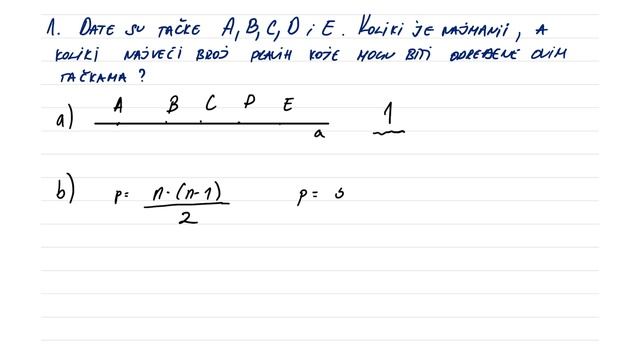 1. DATE SU TAČKE A, B, C, D i E. KOLIKI JE NAJMANJI, A
KOLIKI NAJVEĆI BROJ PRAVIH KOJE MOGU BITI ODREĐENE OVIM
TAČKAMA?
a) A B C D E 1
a
b) p = n·(n-1) / 2 p = 5